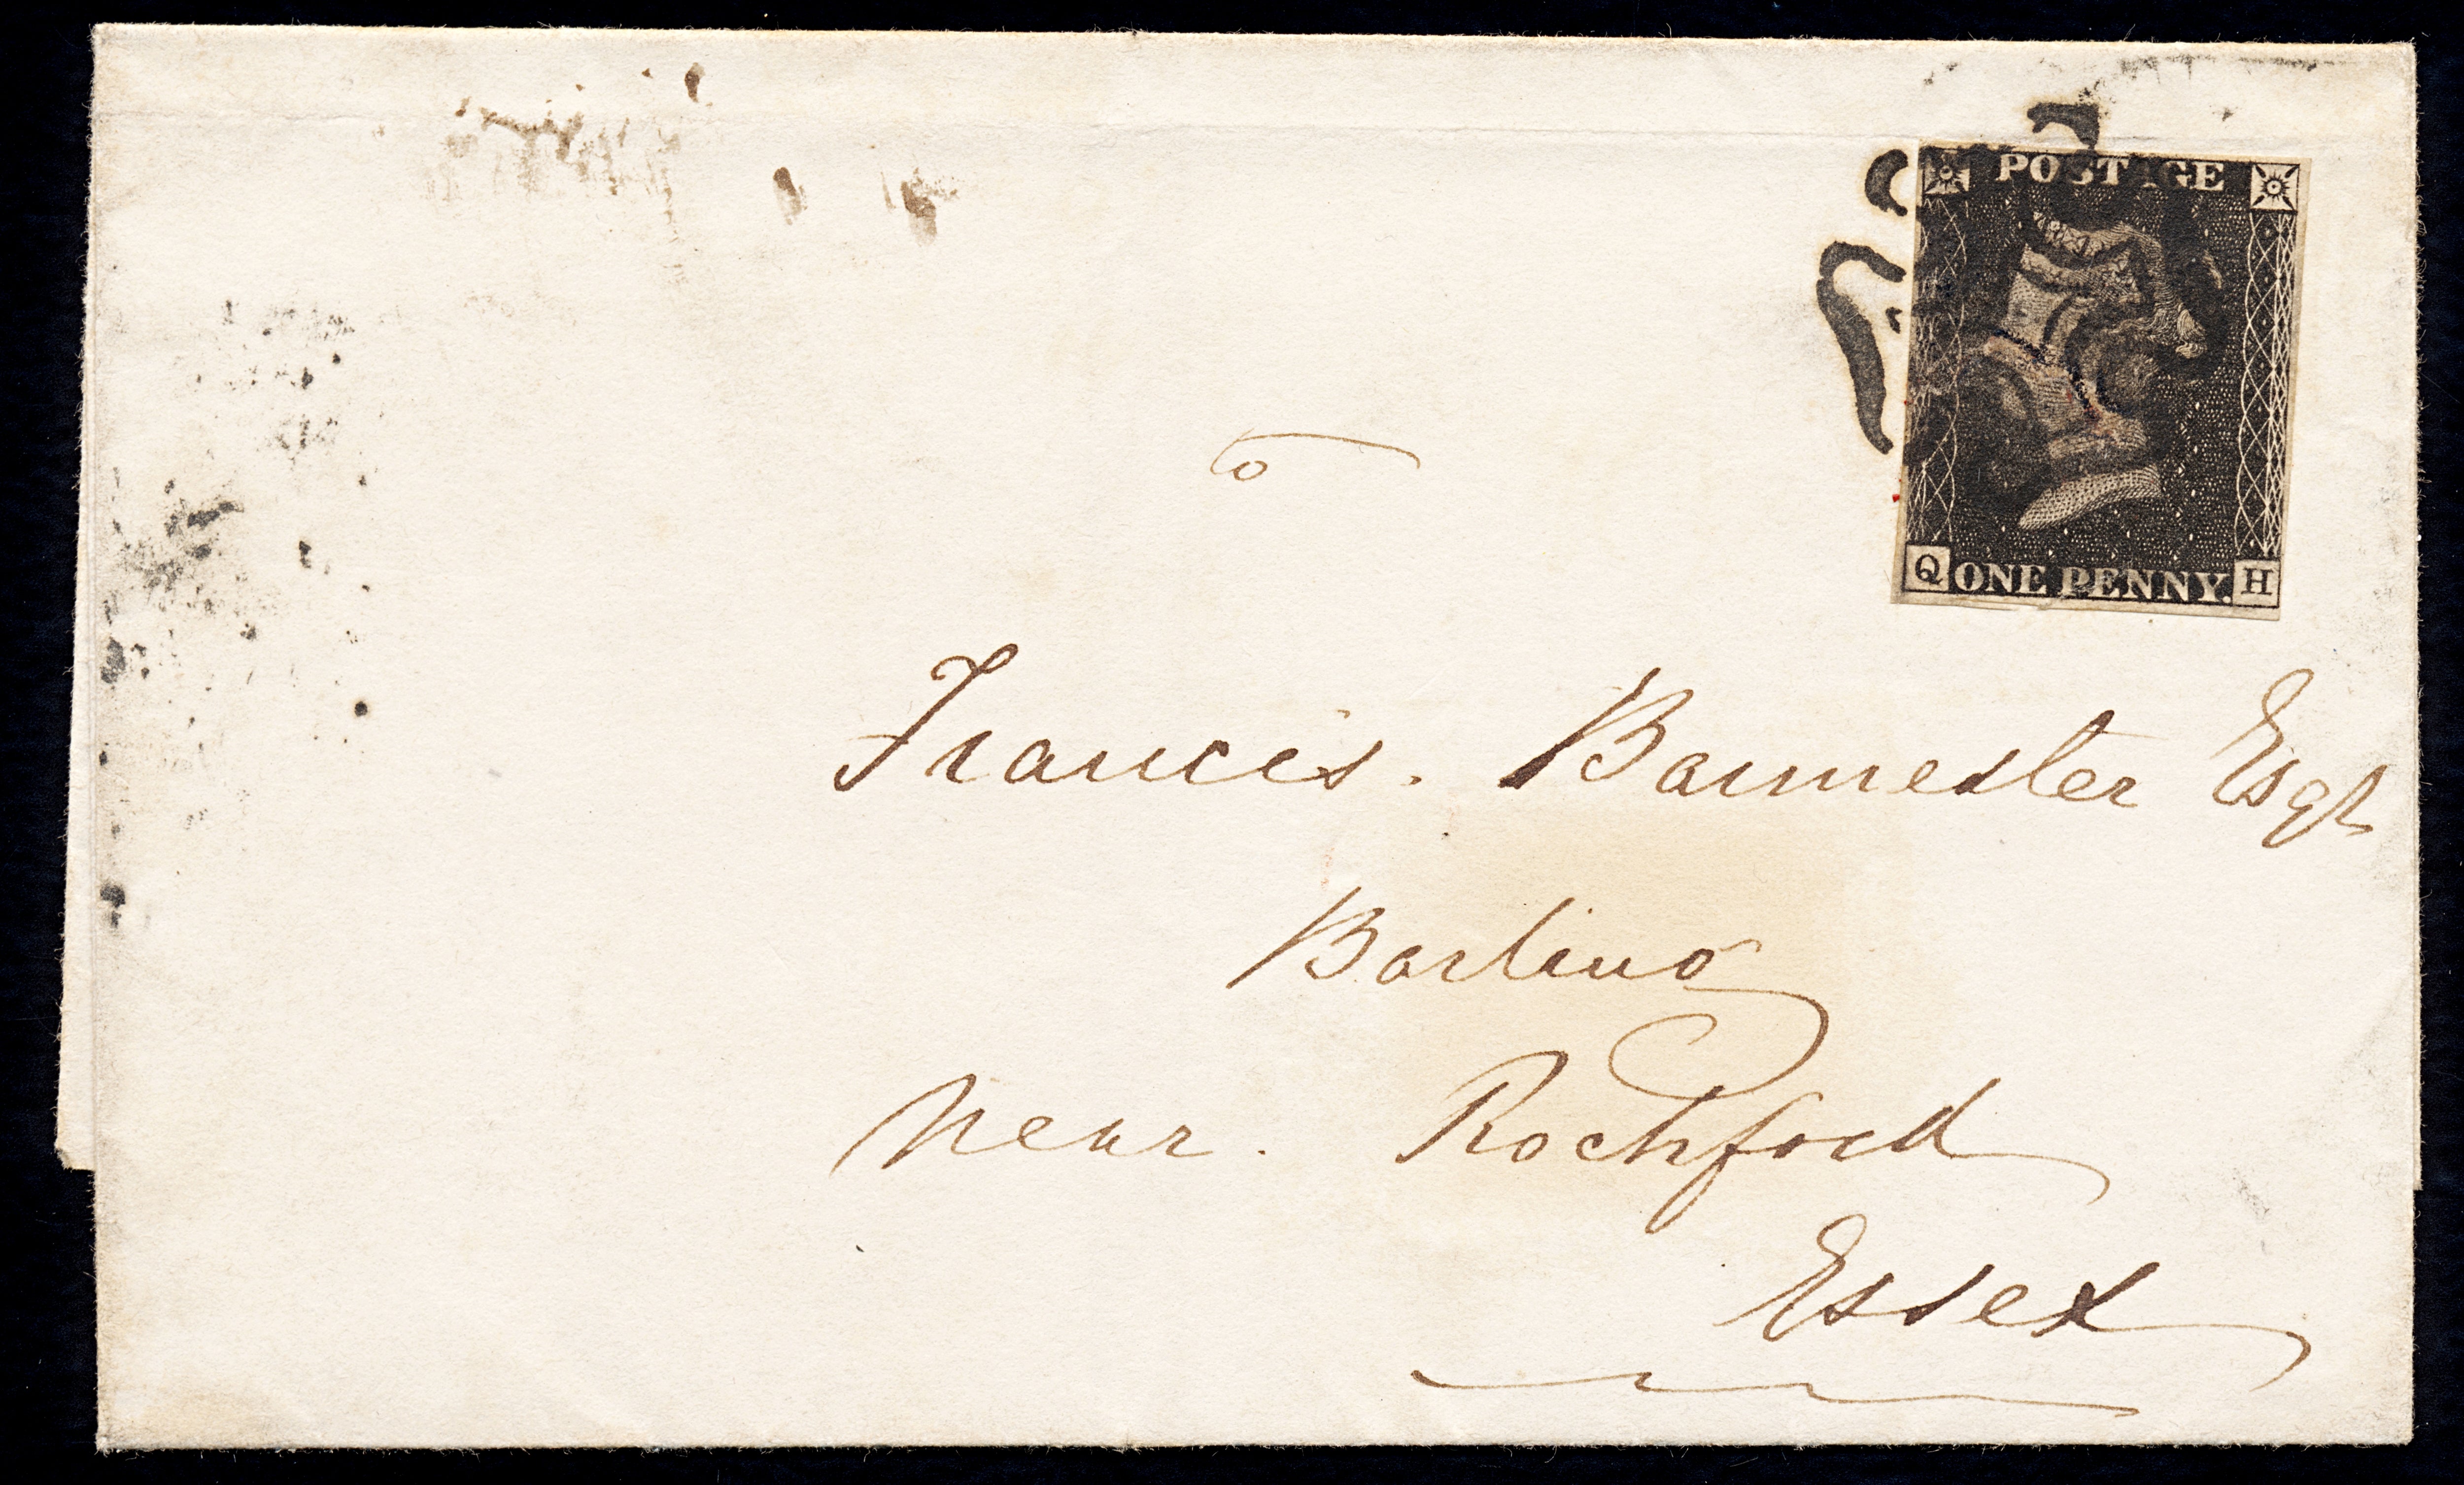 POSTAGE
Q ONE PENNY. H
To
Francis. Barmester Esqr
Barling
Near. Rochford
Essex